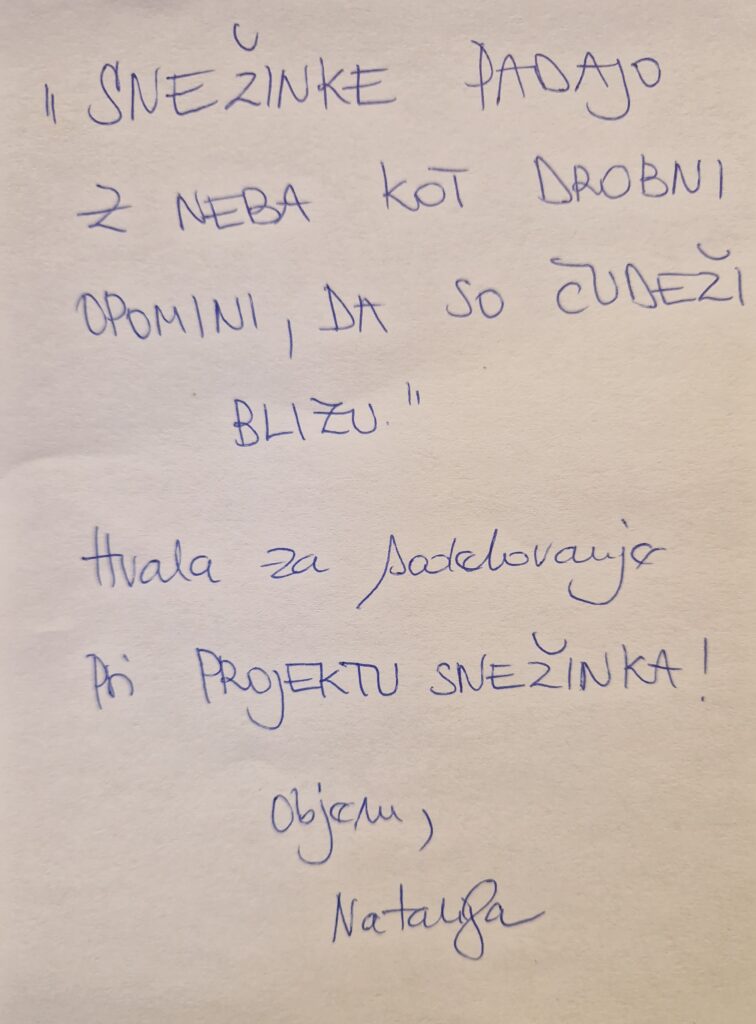 "SNEŽINKE PADAJO
Z NEBA KOT DROBNI
OPOMINI, DA SO ČUDEŽI
BLIZU."
Hvala za sodelovanje
pri PROJEKTU SNEŽINKA!
Objem,
Natalija